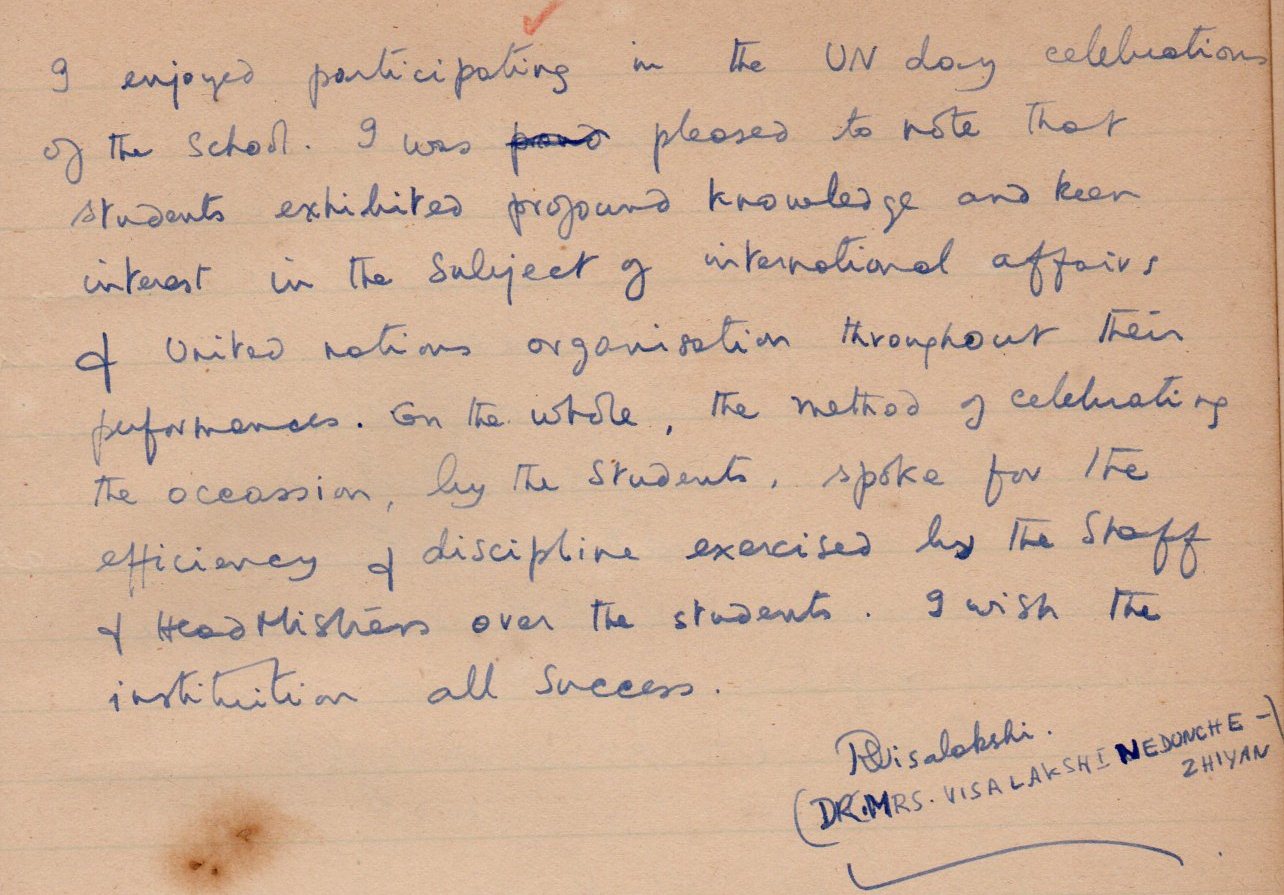 I enjoyed participating in the UN day celebrations
of the School. I was pleased to note that
students exhibited profound knowledge and keen
interest in the Subject of international affairs
& United nations organisation throughout their
performances. On the whole, the method of celebrating
the occassion, by the Students, spoke for the
efficiency & discipline exercised by the Staff
& HeadMistress over the students. I wish the
instituition all Success.
Visalakshi.
(DR.MRS. VISALAKSHI NEDUNCHE-)
ZHIYAN